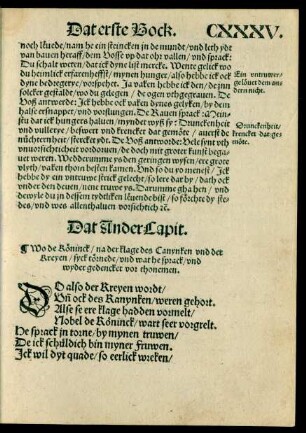 Dat erste Bock. CXXXV.
noch leuede/ nam he ein steincken in de munde/ vnd leth ydt
van bauen heraff/ dem Vosse vp dat ohr vallen/ vnd sprack:
Du schalt weten/ dat ick dyne list mercke. Wente gelick wo
du heimlick mynen hunger/ also hebbe ick ock
dyne bedregerye/ vorspehet. Ja vaken hebbe ick den/ de yn
solcker gestaldt/ wo du gelegen/ de ogen vthgegrauen. De
Voß antwerde: Ick hebbe ock vaken dynes gelyken/ by dem
halse ersnappet/ vnd vorslungen. De Rauen sprack:
dat ick hungers haluen/ mynder wyß sy: Drunckenheit
vnd vullerye/ beswert vnd krencket dat gemöte/ auerst de
nüchternheit/ stercket ydt. De Voß antwerde: Vele synt vth
vnuorsichticheit vordoruen/ de doch mit groter kunst begaet
weren. Wedderumme ys den geringen wysen/ ere grote
vlyth/ vaken thom besten kamen. Vnd so du yo menest/ Ick
hebbe dy ein vntruwe strick gelecht/ so lere dar by/ dath ock
vnder den deuen/ nene truwe ys. Darumme gha hen/ vnd
dewyle du yn dessem tydtliken leuende bist/ so förchte dy ste-
des/ vnd wes allenthaluen vorsichtich ꝛc.
Ein vntruwer/
gelöuet dem an-
dern nicht.
Drunckenheit/
krencket dat ge-
möte.
Dat Ander Capit.
¶ Wo de Köninck/ na der klage des Canynken vnd der
Kreyen/ syck törnede/ vnd wat he sprack/ vnd
wyder gedencket vor thonemen.
DO also der Kreyen wordt/
Vñ ock des Kanynken/ weren gehort.
Alse se ere klage hadden vormelt/
Nobel de Köninck/ wart seer vorgrelt.
He sprack in torne/ by mynen truwen/
De ick schüldich bin myner Fruwen.
Ick wil dyt quade/ so eerlick wreken/